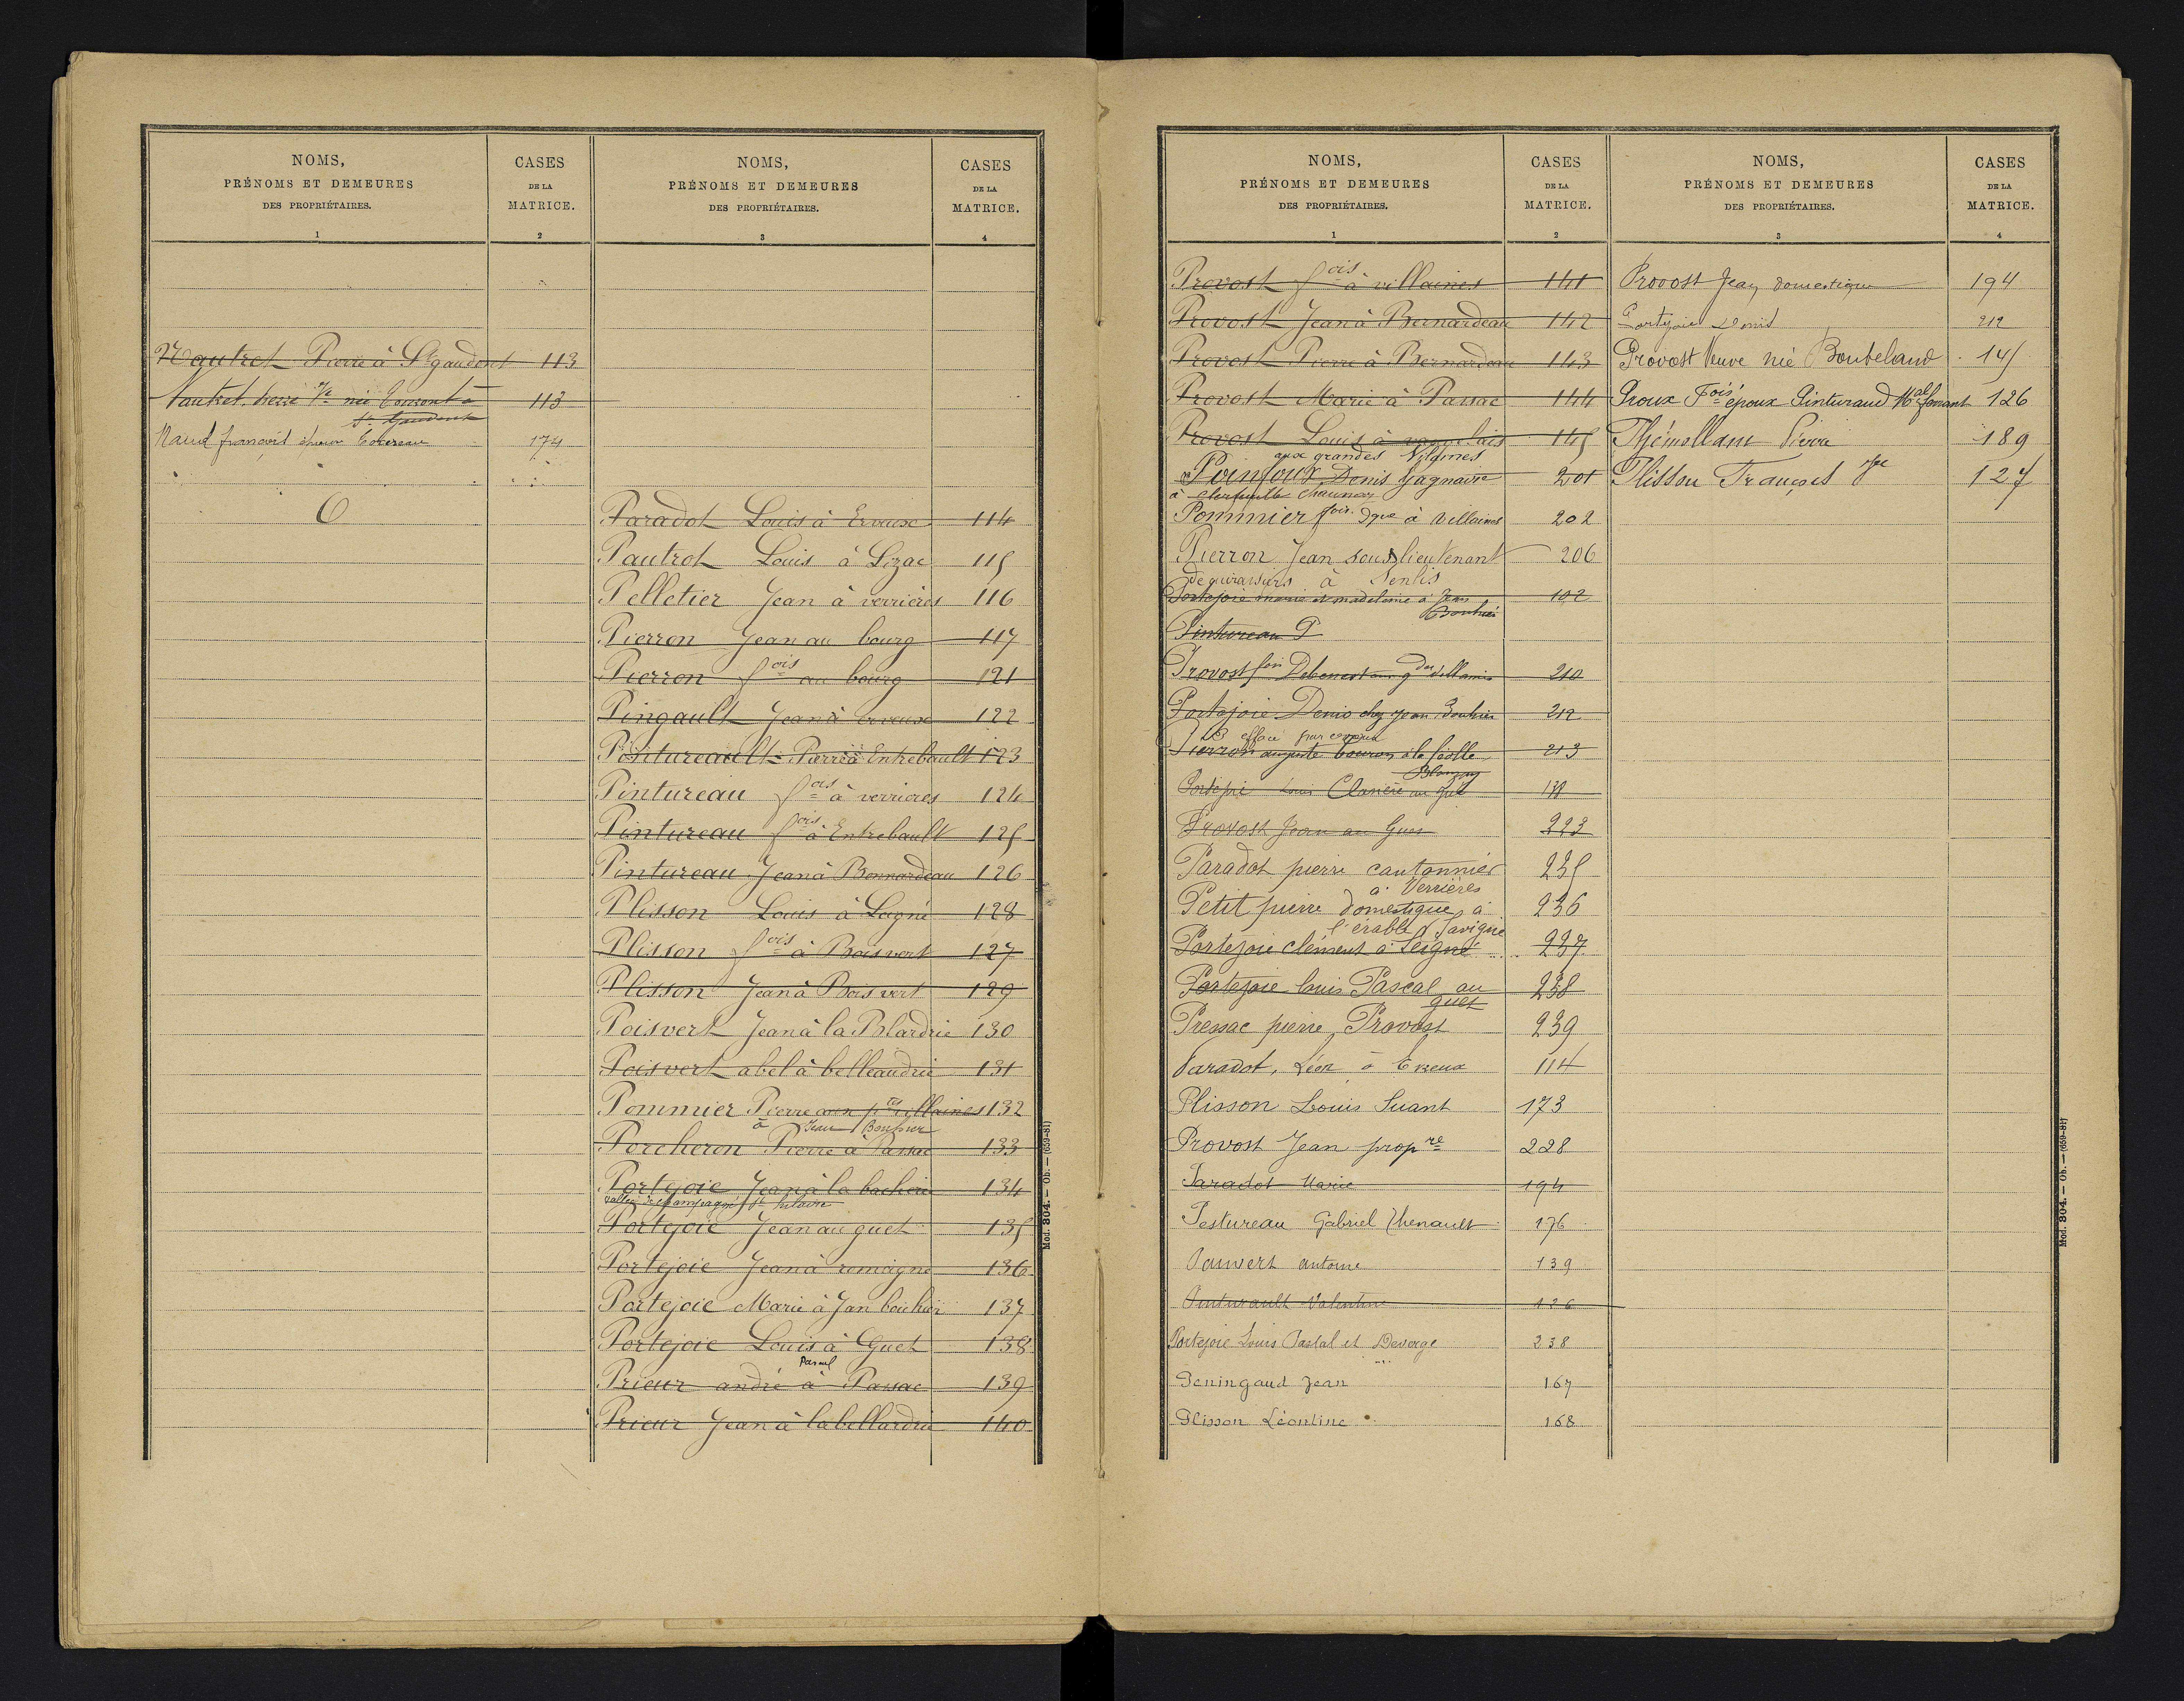 NOMS,
PRÉNOMS ET DEMEURES
DES PROPRIÉTAIRES.
1
CASES
DE LA
MATRICE.
2
Nautret Pierre à St gaudent 113
Nautret Pierre Ve née à 113
St Gaudent
Naud françois époux 174
O
NOMS,
PRÉNOMS ET DEMEURES
DES PROPRIÉTAIRES.
3
CASES
DE LA
MATRICE.
4
Paradot Louis à Erveux 114
Pautrot Louis à Lizac 115
Pelletier Jean à verrières 116
Pierron Jean au bourg 117
Pierron fois au bourg 121
Pingault Jean à erveux 122
Pintureault Pierre à Entrebault 123
Pintureau fois à verrieres 124
Pintureau fois à Entrebault 125
Pintureau Jean à Bernardeau 126
Plisson Louis à Leigné 128
Plisson fois à Boisvert 127
Plisson Jean à Bois vert 129
Poisvert Jean à la Blardrie 130
Poisvert abel à belleaudrie 131
Pommier Pierre aux ptes villaines 132
à Jean Bouhier
Porcheron Pierre à Passac 133
Portejoie Jean à la bacherie 134
Portejoie Jean au guet 135
Portejoie Jean à romagne 136
Portejoie Marie à Jan bouhier 137
Portejoie Louis à Guet 138
Pascal
Prieur andré à Passac 139
Prieur Jean à la bellardrie 140
Mod. 304. — Ob. — (659-81)
NOMS,
PRÉNOMS ET DEMEURES
DES PROPRIÉTAIRES.
1
CASES
DE LA
MATRICE.
2
Provost fois à villaines 141
Provost Jean à Bernardeau 142
Provost Pierre à Bernardeau 143
Provost Marie à Passac 144
Provost Louis à 145
aux grandes Vilaines
Denis 201
à Chaunay
Pommier fois dque à Villaines 202
Pierron Jean sous lieutenant 206
de cuirassiers à Senlis
Portejoie marie et madelaine à Jean 102
Bouhier
Pintureau P
Provost fois Debenest aux gdes villaines 210
Portejoie Denis chez Jean Bouhier 212
effacé par erreur
Pierron auguste 213
Portejoie Louis au Gué 138
Provost Jean au Guet 223
Paradot pierre cantonnier 235
à Verrières
Petit pierre domestique à 236
l'érable Savigné
Portejoie clément à Leigné 237
Portejoie louis Pascal au 238
guet
Pressac pierre Provost 239
Paradot, Léon à Erveux 114
Plisson Louis Suant 173
Provost Jean propre 228
Paradot Marie 194
Pestureau Gabriel Thenault 176
Pauvert antoine 139
Pinturault Valentine 126
Portejoie Louis Pascal et Deverge 238
Peningaud Jean 167
Plisson Léontine 168
NOMS,
PRÉNOMS ET DEMEURES
DES PROPRIÉTAIRES.
3
CASES
DE LA
MATRICE.
4
Provost Jean domestique 194
Portejoie Denis 212
Provost Veuve née Boubeland 145
Proux Fois époux Pinturaud Mal ferrant 126
Pierre 189
Plisson François 127
Mod. 304. — Ob. — (659-81)